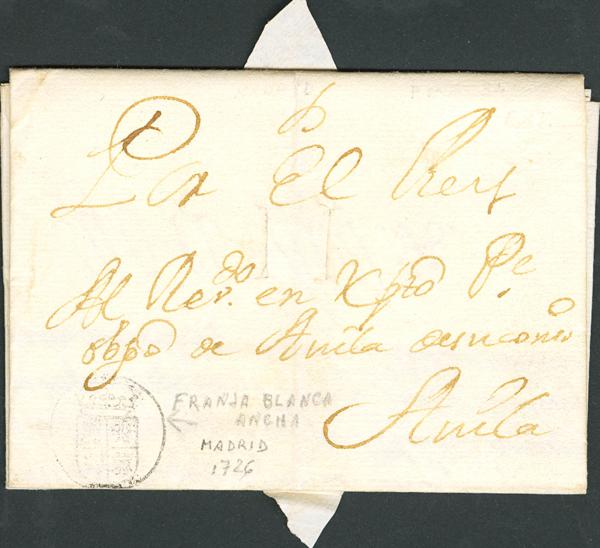 Por El Rey
Al Rev.do en Xpto Pe.
obpo de Avila de su cons.o
Avila
FRANJA BLANCA
ANCHA
MADRID
1726